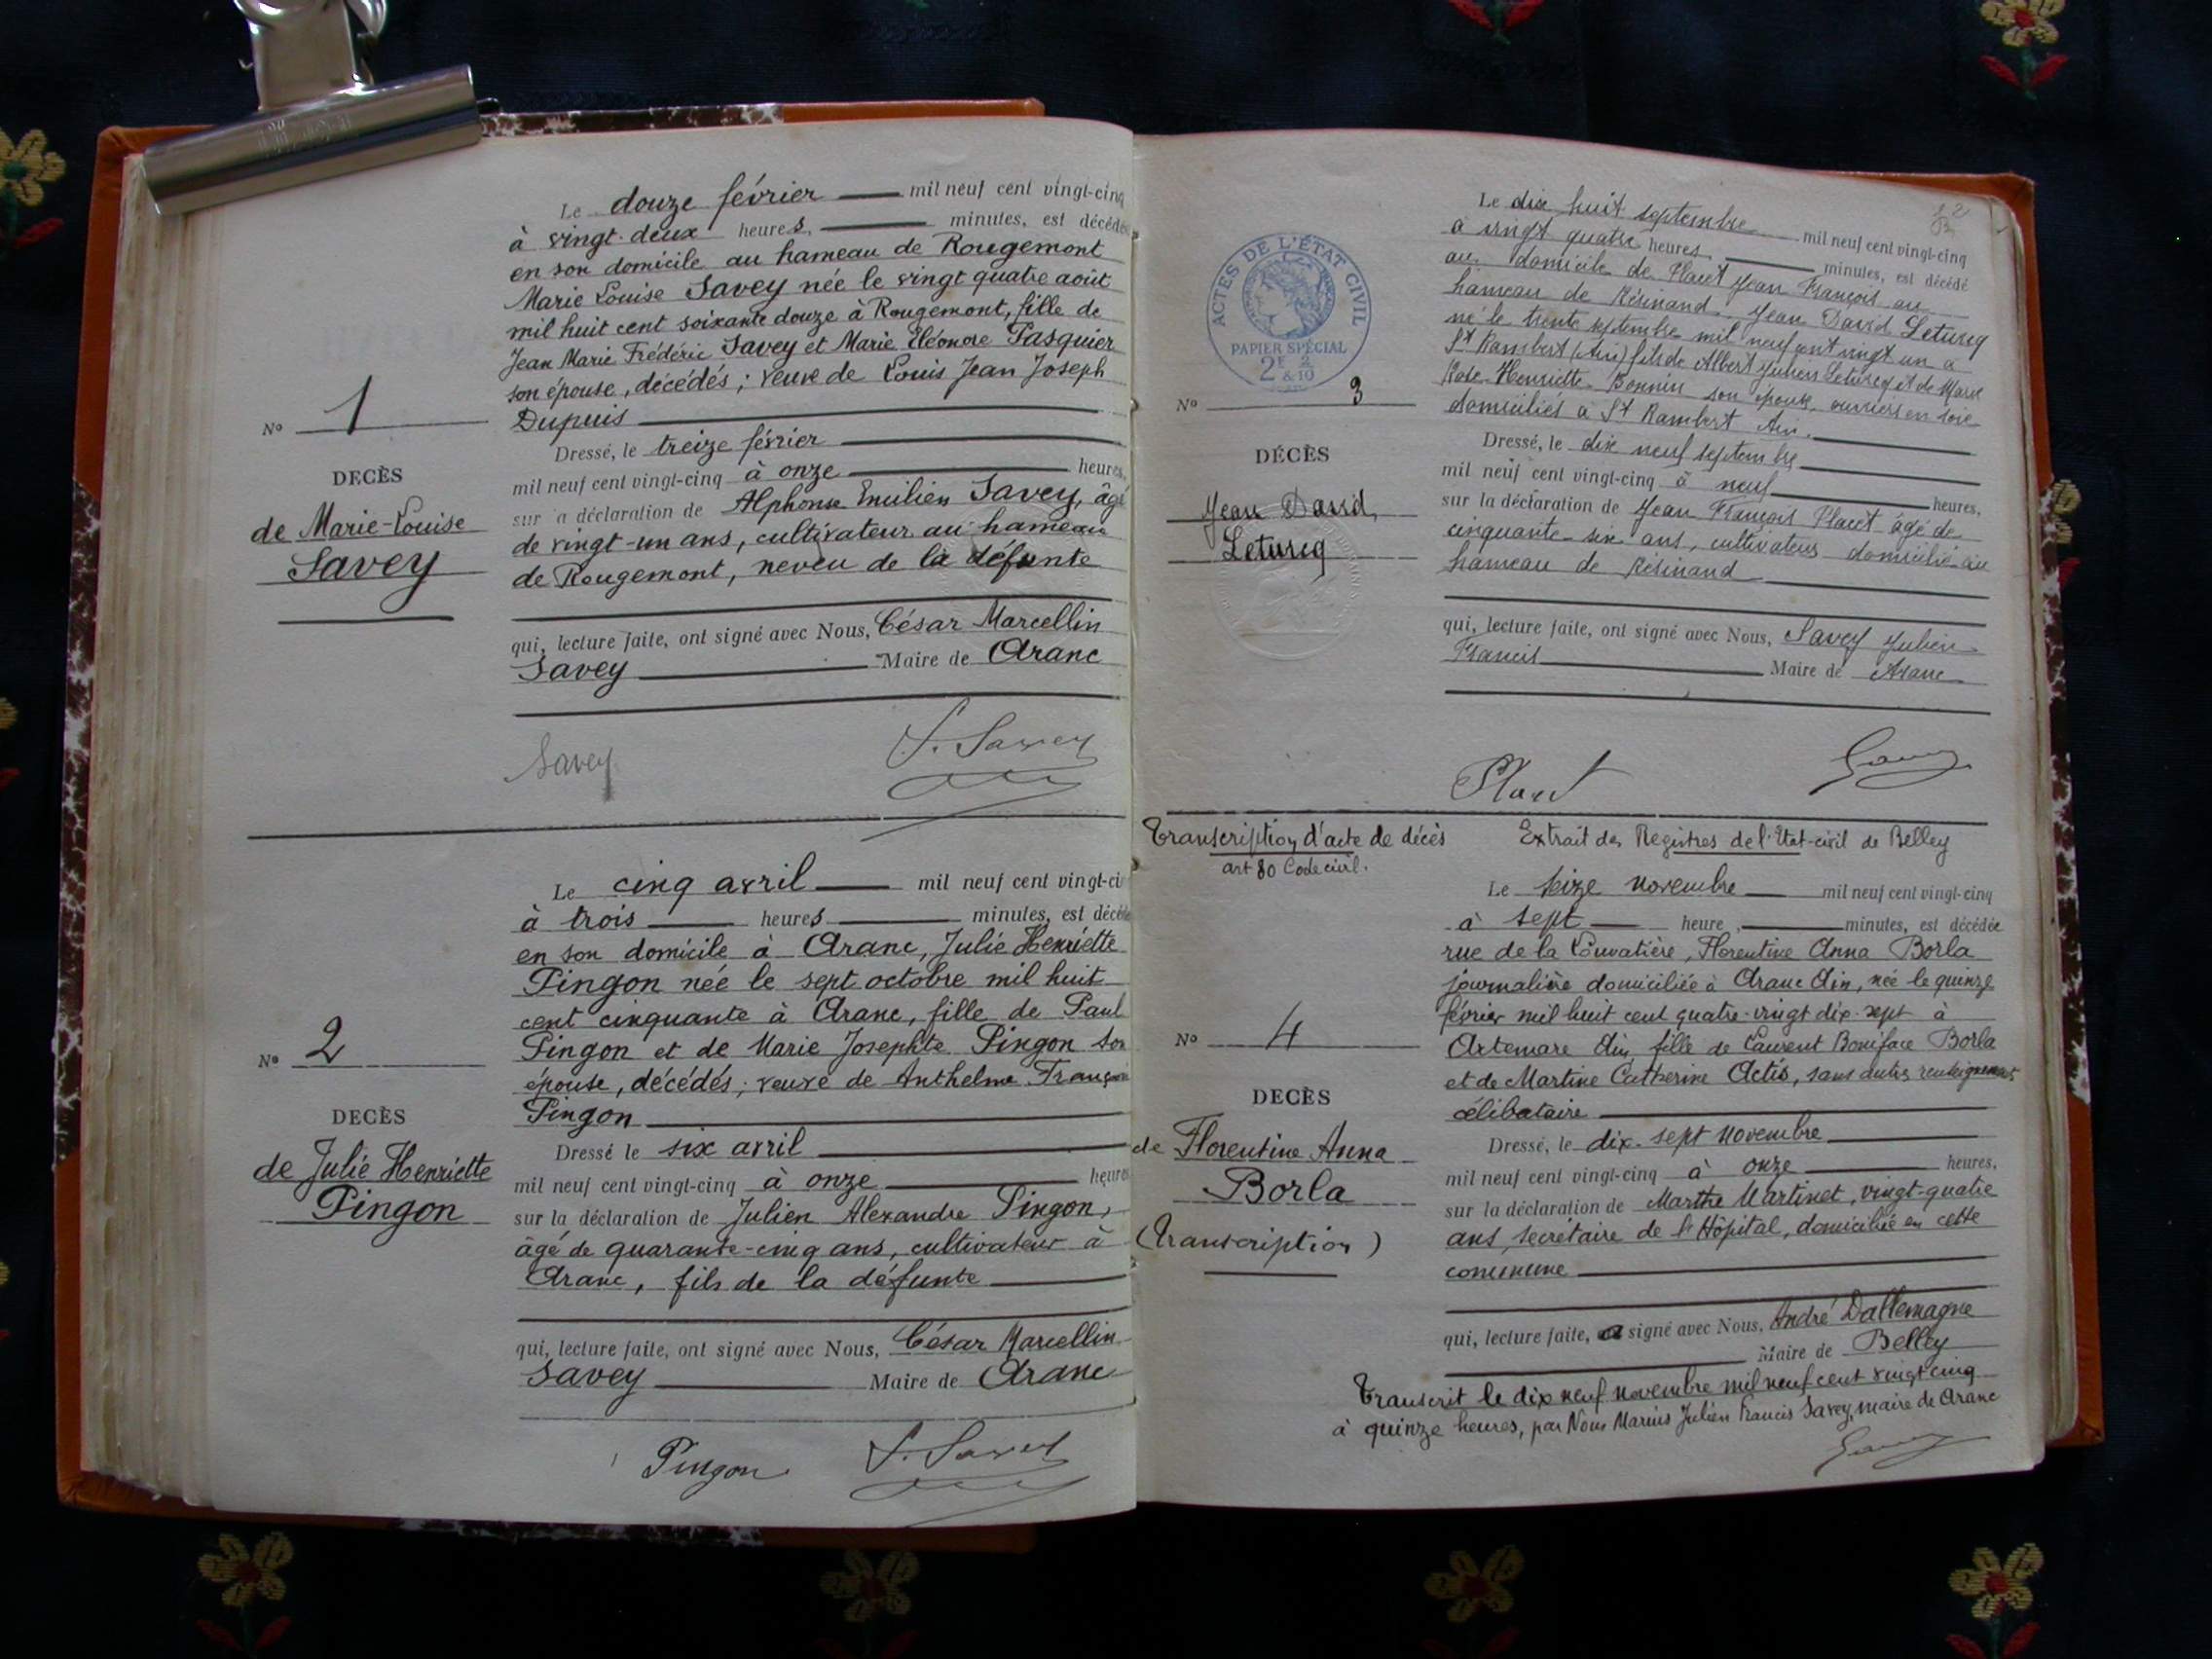 Le douze février mil neuf cent vingt-cinq
à vingt-deux heures, minutes, est décédée
en son domicile au hameau de Rougemont
Marie Louise Savey née le vingt quatre août
mil huit cent soixante douze à Rougemont, fille de
Jean Marie Frédéric Savey et Marie Eléonore Pasquier
son épouse, décédés; veuve de Louis Jean Joseph
Dupuis
Nº 1
DECÈS
de Marie-Louise
Savey
Dressé, le treize février
mil neuf cent vingt-cinq à onze heures,
sur la déclaration de Alphonse Emilien Savey, âgé
de vingt-un ans, cultivateur au hameau
de Rougemont, neveu de la défunte
qui, lecture faite, ont signé avec Nous, César Marcellin
Savey Maire de Aranc
Savey
Savey
Le cinq avril mil neuf cent vingt-ci
à trois heures minutes, est décédée
en son domicile à Aranc, Julie Henriette
Pingon née le sept octobre mil huit
cent cinquante à Aranc, fille de Paul
Pingon et de Marie Josephte Pingon son
épouse, décédés; veuve de Anthelme François
Pingon
Nº 2
DECÈS
de Julie Henriette
Pingon
Dressé le six avril
mil neuf cent vingt-cinq à onze heures
sur la déclaration de Julien Alexandre Pingon,
âgé de quarante-cinq ans, cultivateur à
Aranc, fils de la défunte
qui, lecture faite, ont signé avec Nous, César Marcellin
Savey Maire de Aranc
Pingon
Savey
ACTES DE L'ÉTAT CIVIL
PAPIER SPÉCIAL
2E 2/10
Le dix huit septembre mil neuf cent vingt-cinq
à vingt quatre heures minutes, est décédé
au domicile de Placet Jean François au
hameau de Résinand. Jean David Leturcq
né le trente septembre mil neuf cent vingt un à
St Rambert (Ain) fils de Albert Julien Leturcq et de
Rose Henriette Bonnin son épouse, ouvriers en soie
domiciliés à St Rambert Ain.
Nº 3
DÉCÈS
Jean David
Leturcq
Dressé, le dix neuf septembre
mil neuf cent vingt-cinq à neuf heures,
sur la déclaration de Jean François Placet âgé de
cinquante six ans, cultivateur domicilié au
hameau de Résinand
qui, lecture faite, ont signé avec Nous, Savey Julien
Francis Maire de Aranc
Placet
Savey
Transcription d'acte de décès
art 80 Code civil.
Extrait des Registres de l'Etat-civil de Belley
Le seize novembre mil neuf cent vingt-cinq
à sept heure, minutes, est décédée
rue de la Louvatière, Florentine Anna Borla
journalière domiciliée à Aranc Ain, née le quinze
février mil huit cent quatre-vingt dix-sept à
Artemare Ain, fille de Laurent Boniface Borla
et de Martine Catherine Actis, sans autres renseignements
célibataire
Nº 4
DECÈS
de Florentine Anna
Borla
(Transcription)
Dressé, le dix-sept novembre
mil neuf cent vingt-cinq à onze heures,
sur la déclaration de Marthe Martinet, vingt-quatre
ans, secrétaire de l'Hôpital, domiciliée en cette
commune
qui, lecture faite, a signé avec Nous, André Dallemagne
Maire de Belley
Transcrit le dix neuf novembre mil neuf cent vingt cinq
à quinze heures, par Nous Marius Julien Francis Savey, maire de Aranc
Savey